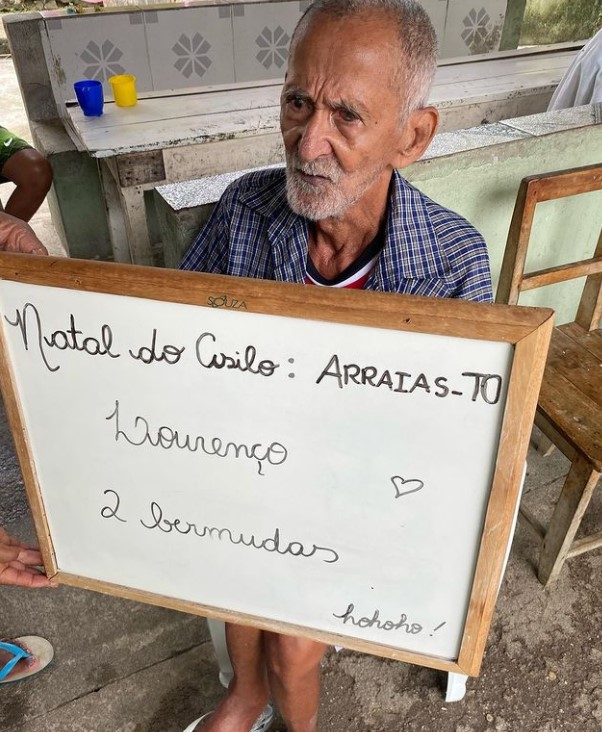 SOUZA
Natal do Asilo: ARRAIAS-TO
Lourenço
2 bermudas
hohoho!